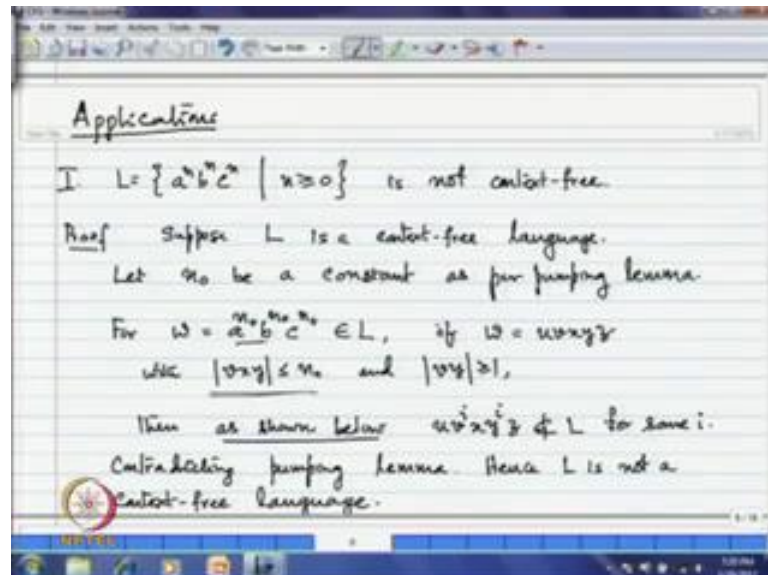 Applications
I. L = { aⁿbⁿcⁿ | n ≥ 0 } is not context-free.
Proof Suppose L is a context-free language.
Let n₀ be a constant as per pumping lemma.
For ω = aⁿ⁰bⁿ⁰cⁿ⁰ ∈ L, if ω = uvxyz
with |vxy| ≤ n₀ and |vy| ≥ 1,
then as shown below uvⁱxyⁱz ∉ L for some i.
Contradicting pumping lemma. Hence L is not a
context-free language.
NPTEL